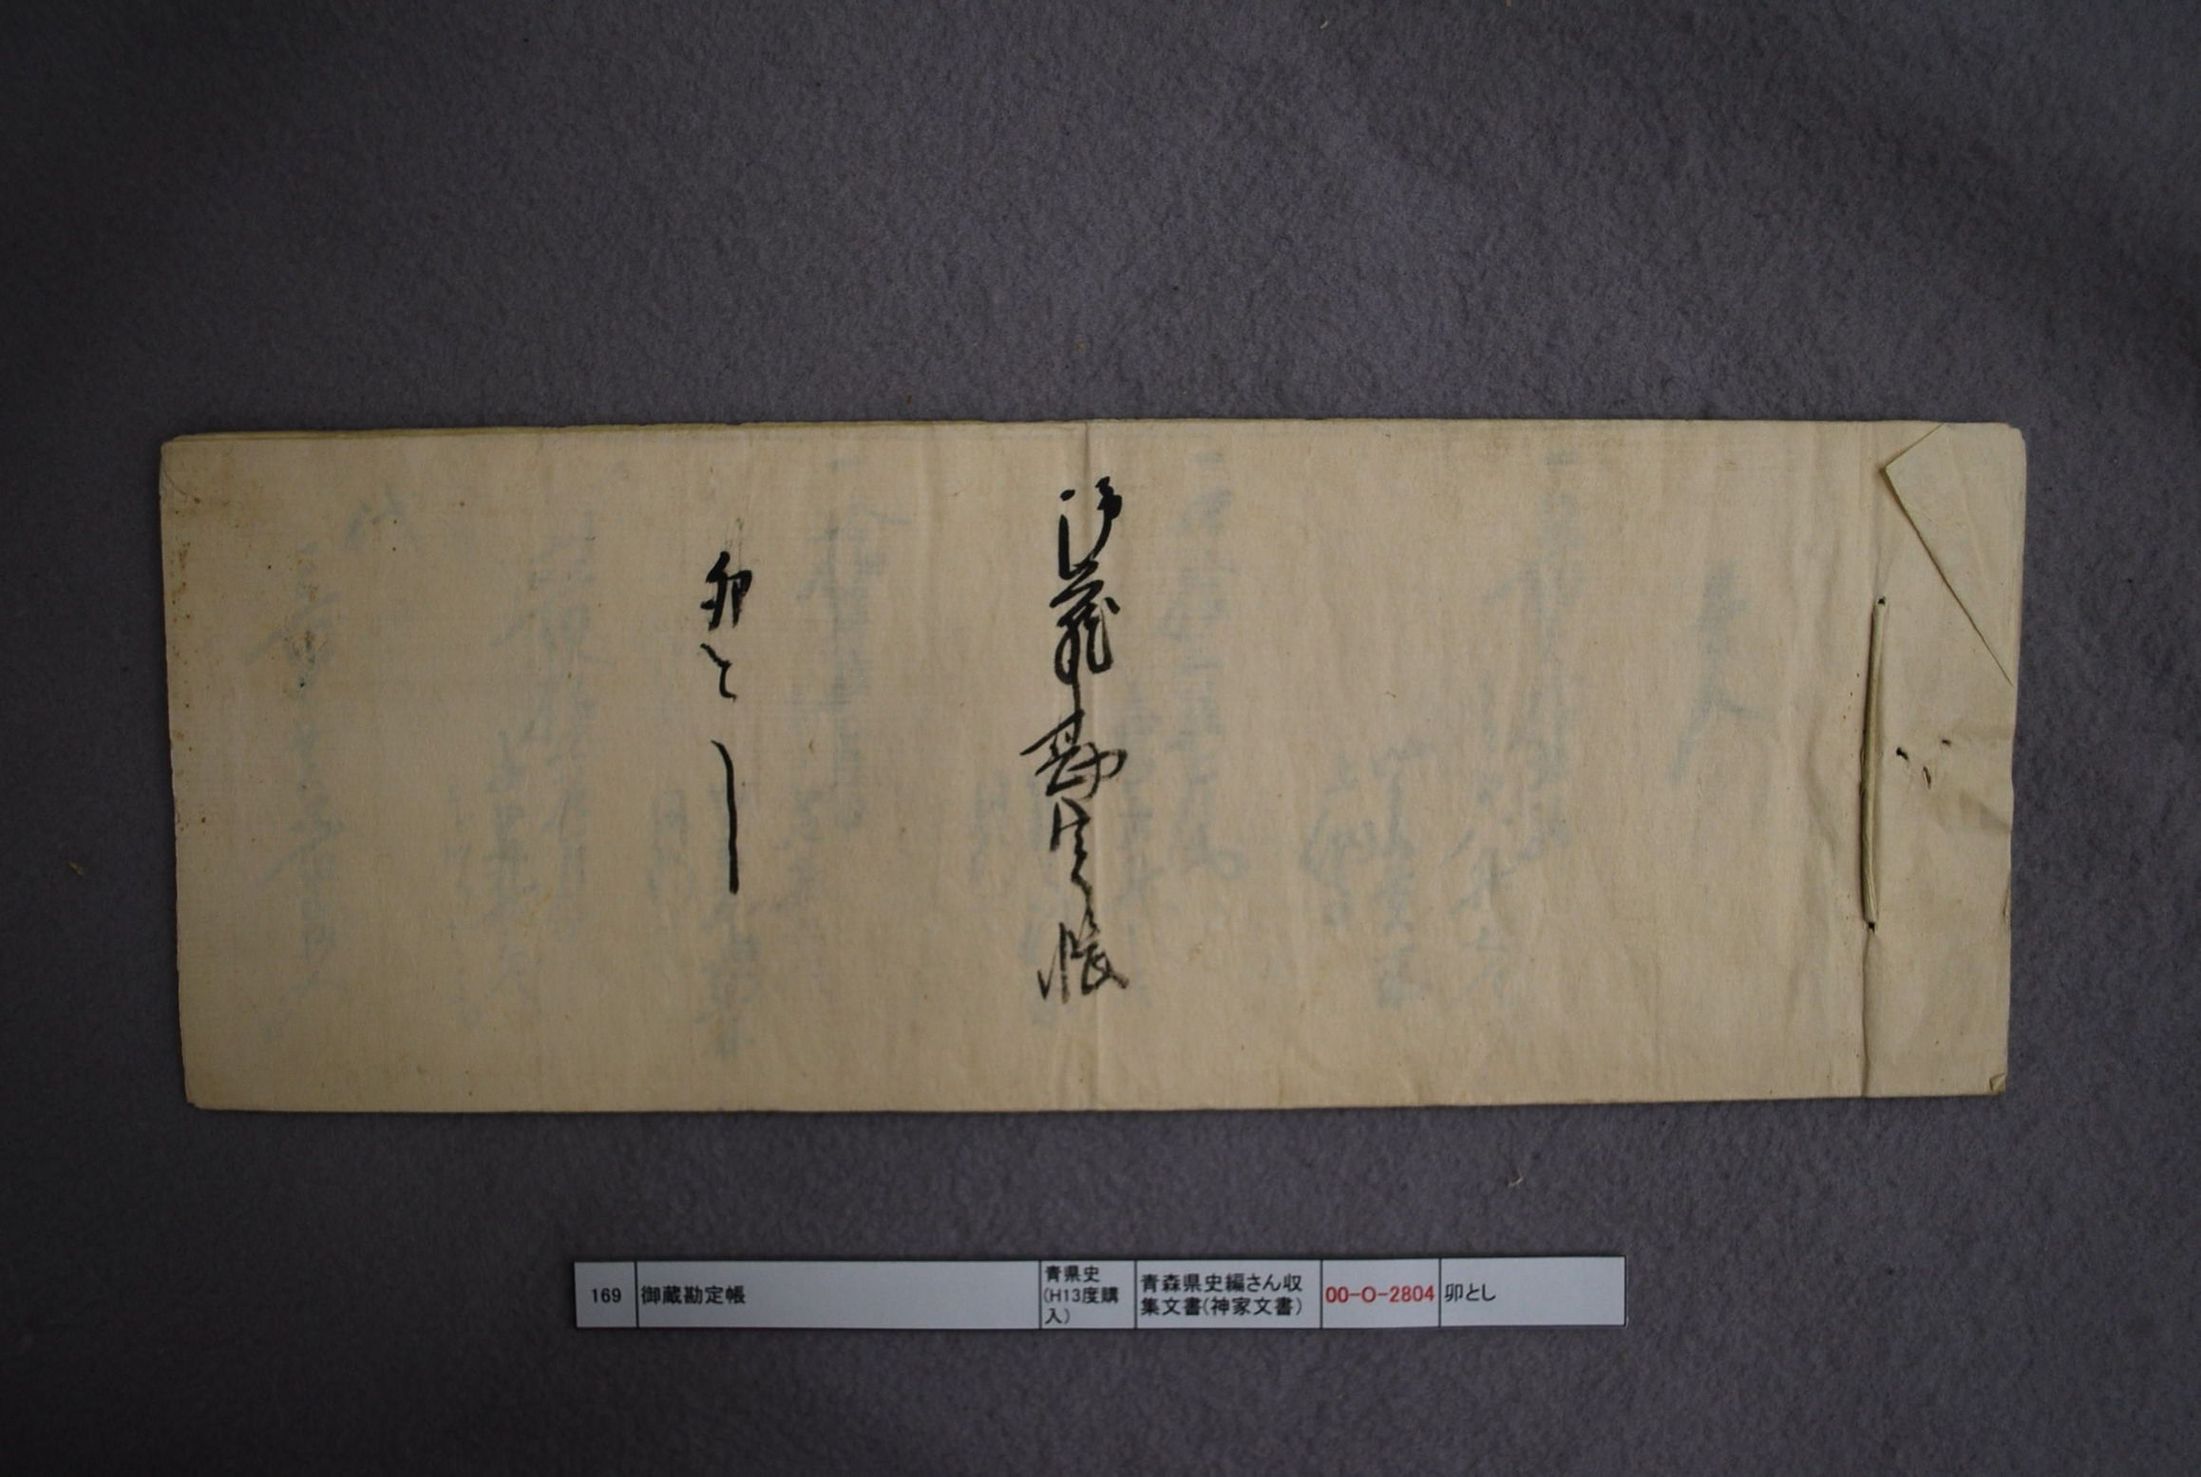 御蔵勘定帳
卯とし
169 御蔵勘定帳 青県史(H13度購入) 青森県史編さん収集文書(神家文書) 00-O-2804 卯とし